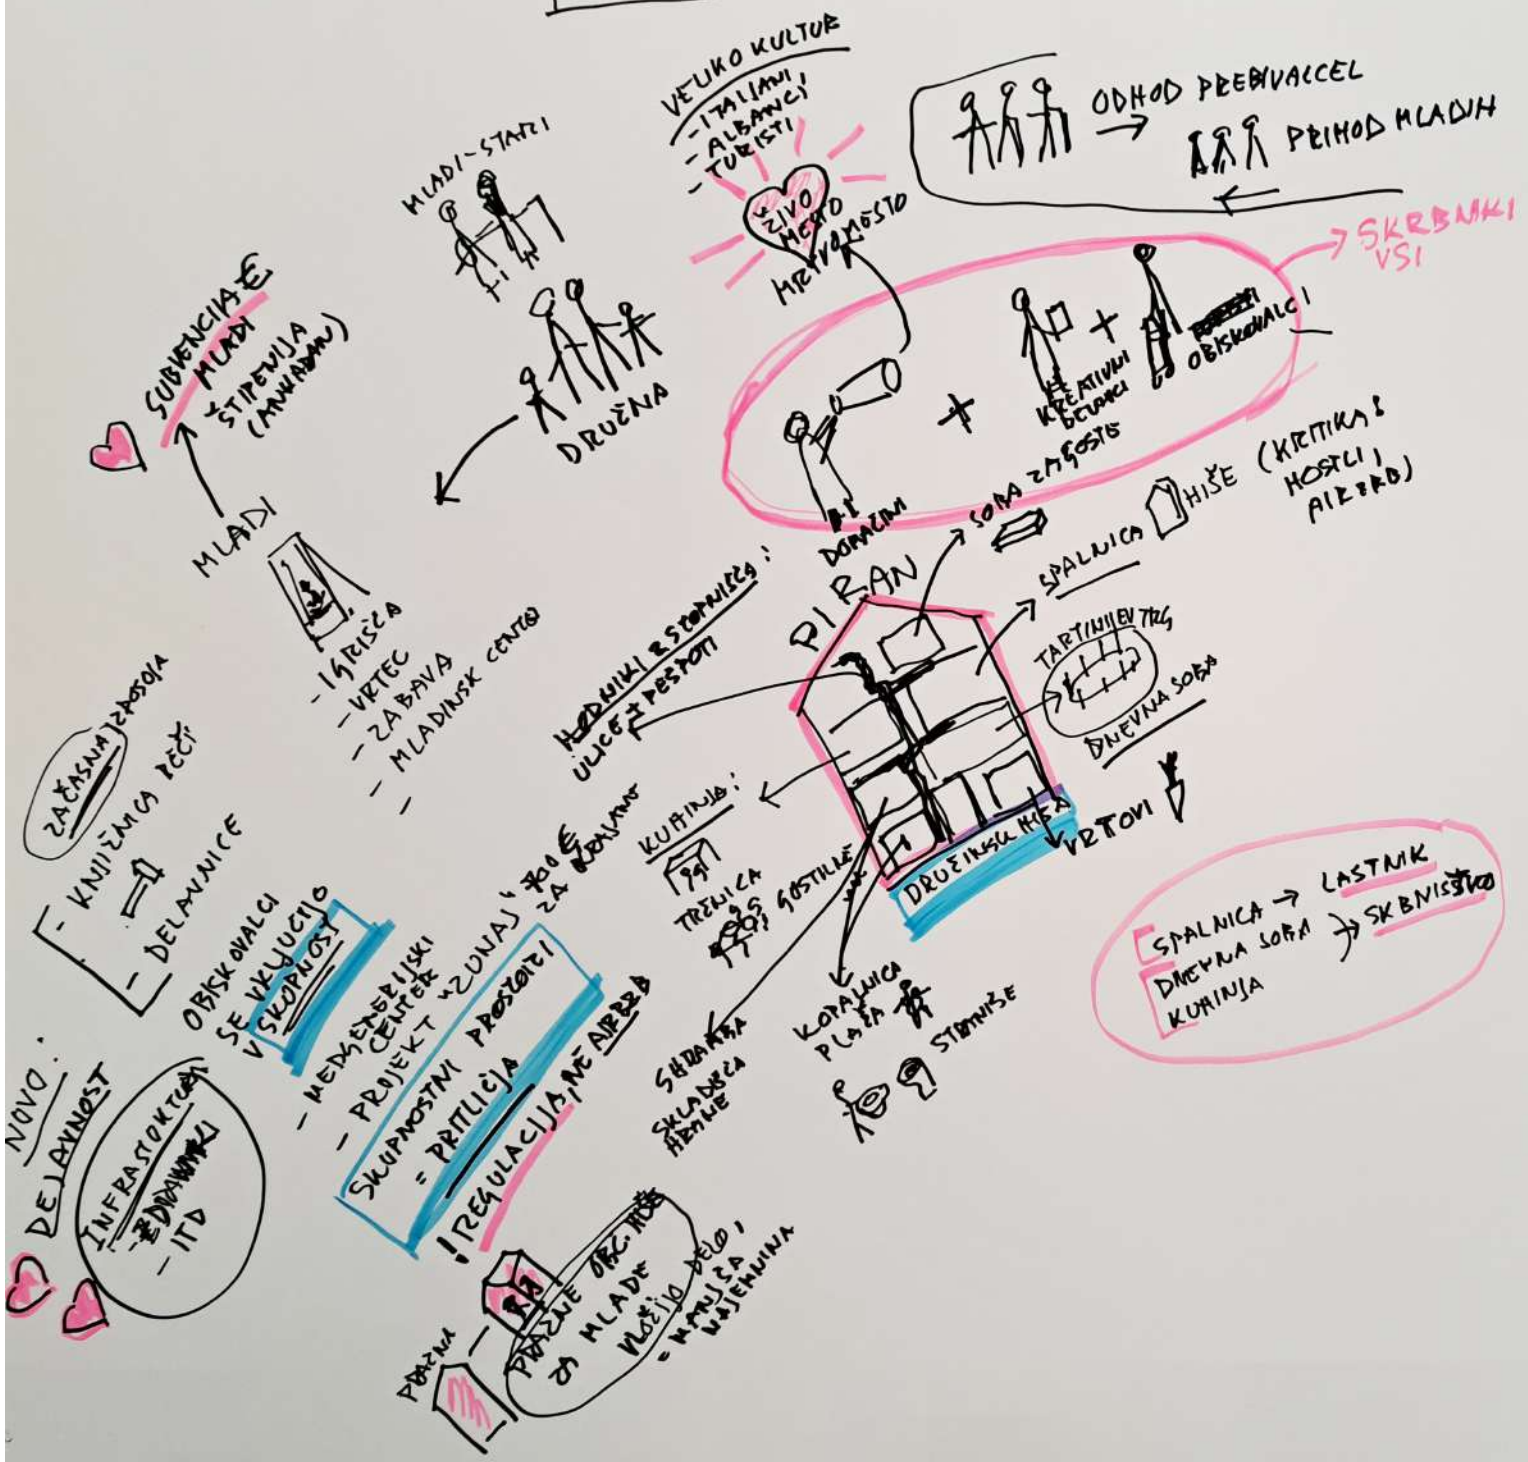 VELIKO KULTUR
- ITALJANI,
- ALBANCI
- TURISTI
ŽIVO
MESTO
MRTVO MESTO
ODHOD PREBIVALCEL
PRIHOD MLADIH
SKRBNIKI
VSI
MLADI-STARI
DRUŽNA
SUBVENCIJA €
MLADI
ŠTIPENIJA
MLADI
- IGRIŠČA
- VRTEC
- ZABAVA
- MLADINSK CENTER
KREATIVNI
DELAVCI
OBISKOVALCI
DOMAČINI
SOBA ZA GOSTE
SPALNICA
HIŠE (KRITIKA:
HOSTLI,
AIRBRB)
PIRAN
HODNIKI & STOPNIŠČA:
ULICE + PESPOTI
TARTINIJEV TRG
DNEVNA SOBA
VRTOVI
DRUŽINSKA HIŠA
KUHINJA:
TRŽNICA
GOSTILLE
KOPALNICA
PLAŽA
STRANIŠE
SHRAMBA
SKLADIŠČA
HRANE
SPALNICA → LASTNIK
DNEVNA SOBA → SKBNIŠTVO
KUHINJA
ZAČASNA IZPOSOJA
- KNJIŽNICA REČI
- DELAVNICE
OBISKOVALCI
SE VKLJUČIJO
V SKUPNOST
- MEDGENERIJSKI
CENTER
- PROJEKT "ZUNAJ"
ZA
SKUPNOSTNI PROSTORI
= PRITLIČJA
! REGULACIJA, NE AIRBZB
NOVO:
DEJAVNOST
INFRASTOKTURA
- ITD
PRAZNA
PRAZNE OBČ. HIŠE
ZA MLADE
VLOŽIJO DELO,
= MANJŠA
NAJEMNINA